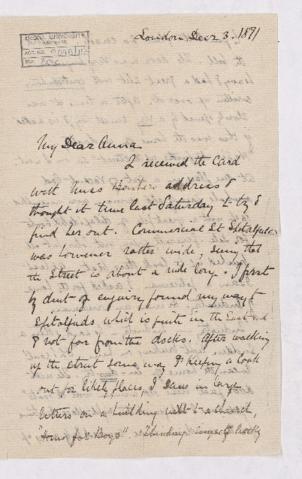 London, Decr 3. 1891
My Dear Anna.
I received the Card
with Miss address &
thought it time last Saturday to try &
find her out. Commercial St Spitalfields
was however rather wide, seeing that
the street is about a mile long. I first
by dint of enquiry found my way to
Spitalfields which is quite in the East end
& not far from the docks. After walking
up the street some way & keeping a look
out for likely places, I saw in large
letters on a building next to a church,
"Home for Boys"